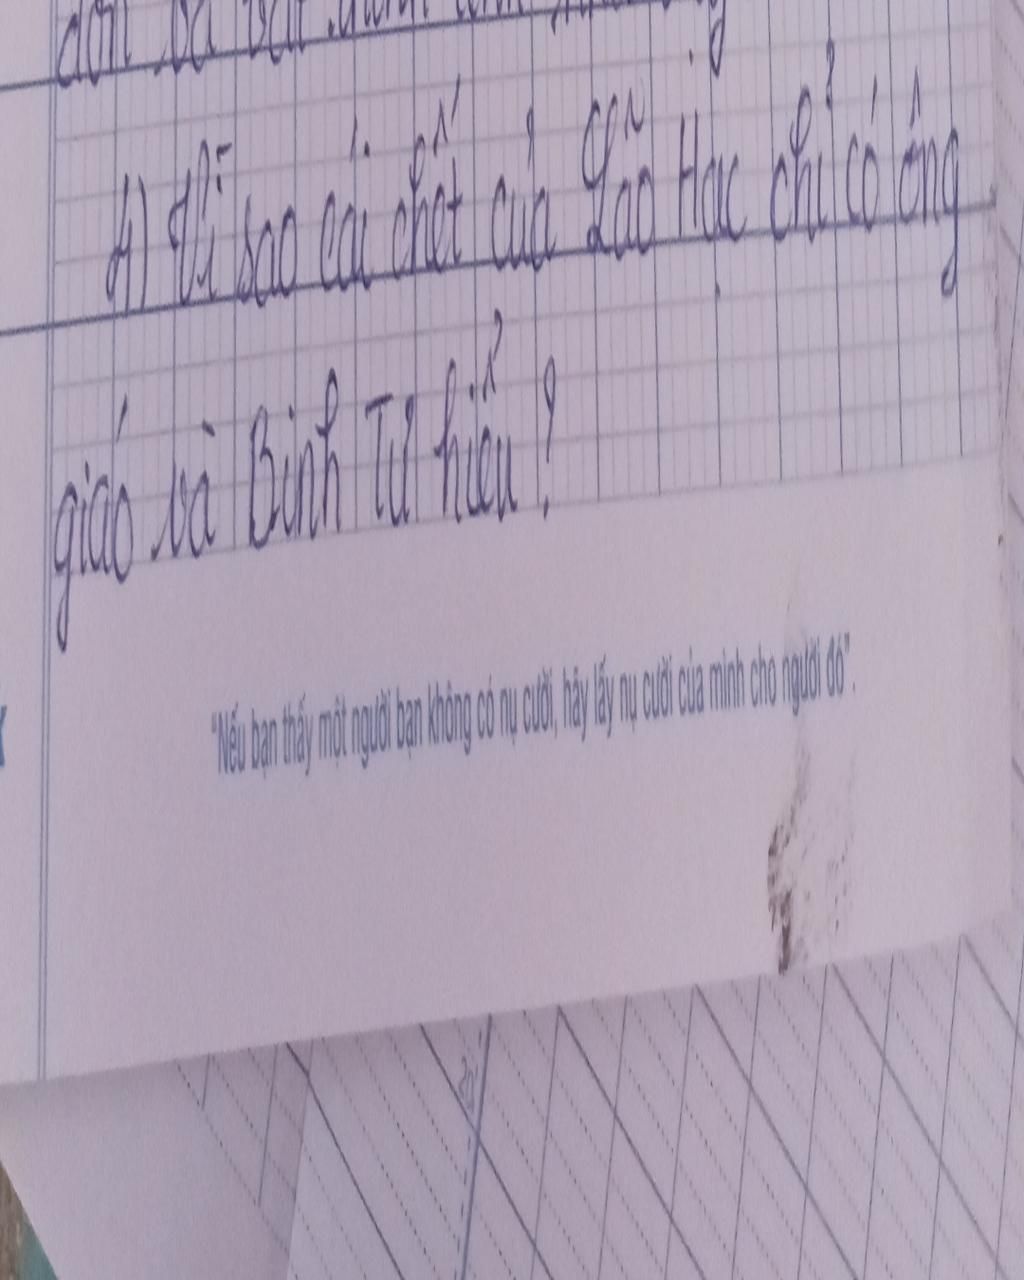 đơn và
4) Vì sao cái chết của Lão Hạc chỉ có ông
giáo và Binh Tư hiểu?
"Nếu bạn thấy một người bạn không có nụ cười, hãy lấy nụ cười của mình cho người đó".